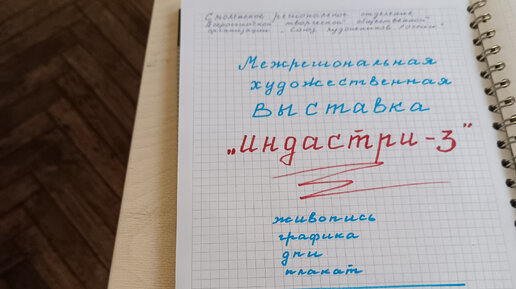 Смоленское региональное отделение
Всероссийской творческой общественной
организации "Союз художников России"
Межрегиональная
художественная
выставка
„индастри-3"
живопись
графика
дпи
плакат